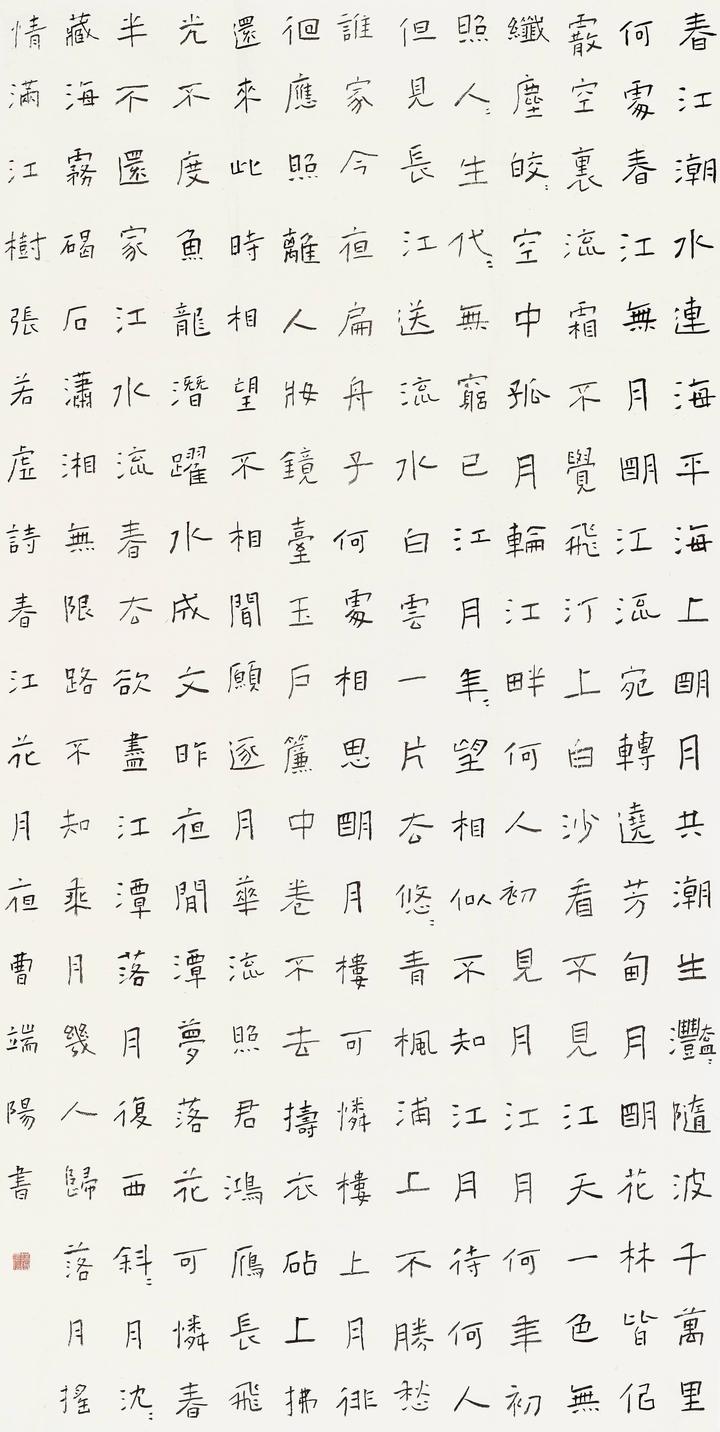 春江潮水連海平海上朙月共潮生灩〻隨波千萬里
何處春江無月朙江流宛轉遶芳甸月朙花林皆佀
霰空裏流霜不覺飛汀上白沙看不見江天一色無
纖塵皎〻空中孤月輪江畔何人初見月江月何年初
照人〻生代〻無窮已江月年〻望相似不知江月待何人
但見長江送流水白雲一片去悠〻青楓浦上不勝愁
誰家今夜扁舟子何處相思朙月樓可憐樓上月徘
徊應照離人妝鏡臺玉戶簾中卷不去擣衣砧上拂
還來此時相望不相聞願逐月華流照君鴻鴈長飛
光不度魚龍潛躍水成文昨夜閒潭夢落花可憐春
半不還家江水流春去欲盡江潭落月復西斜〻月沈〻
藏海霧碣石瀟湘無限路不知乘月幾人歸落月搖
情滿江樹張若虛詩春江花月夜曹端陽書